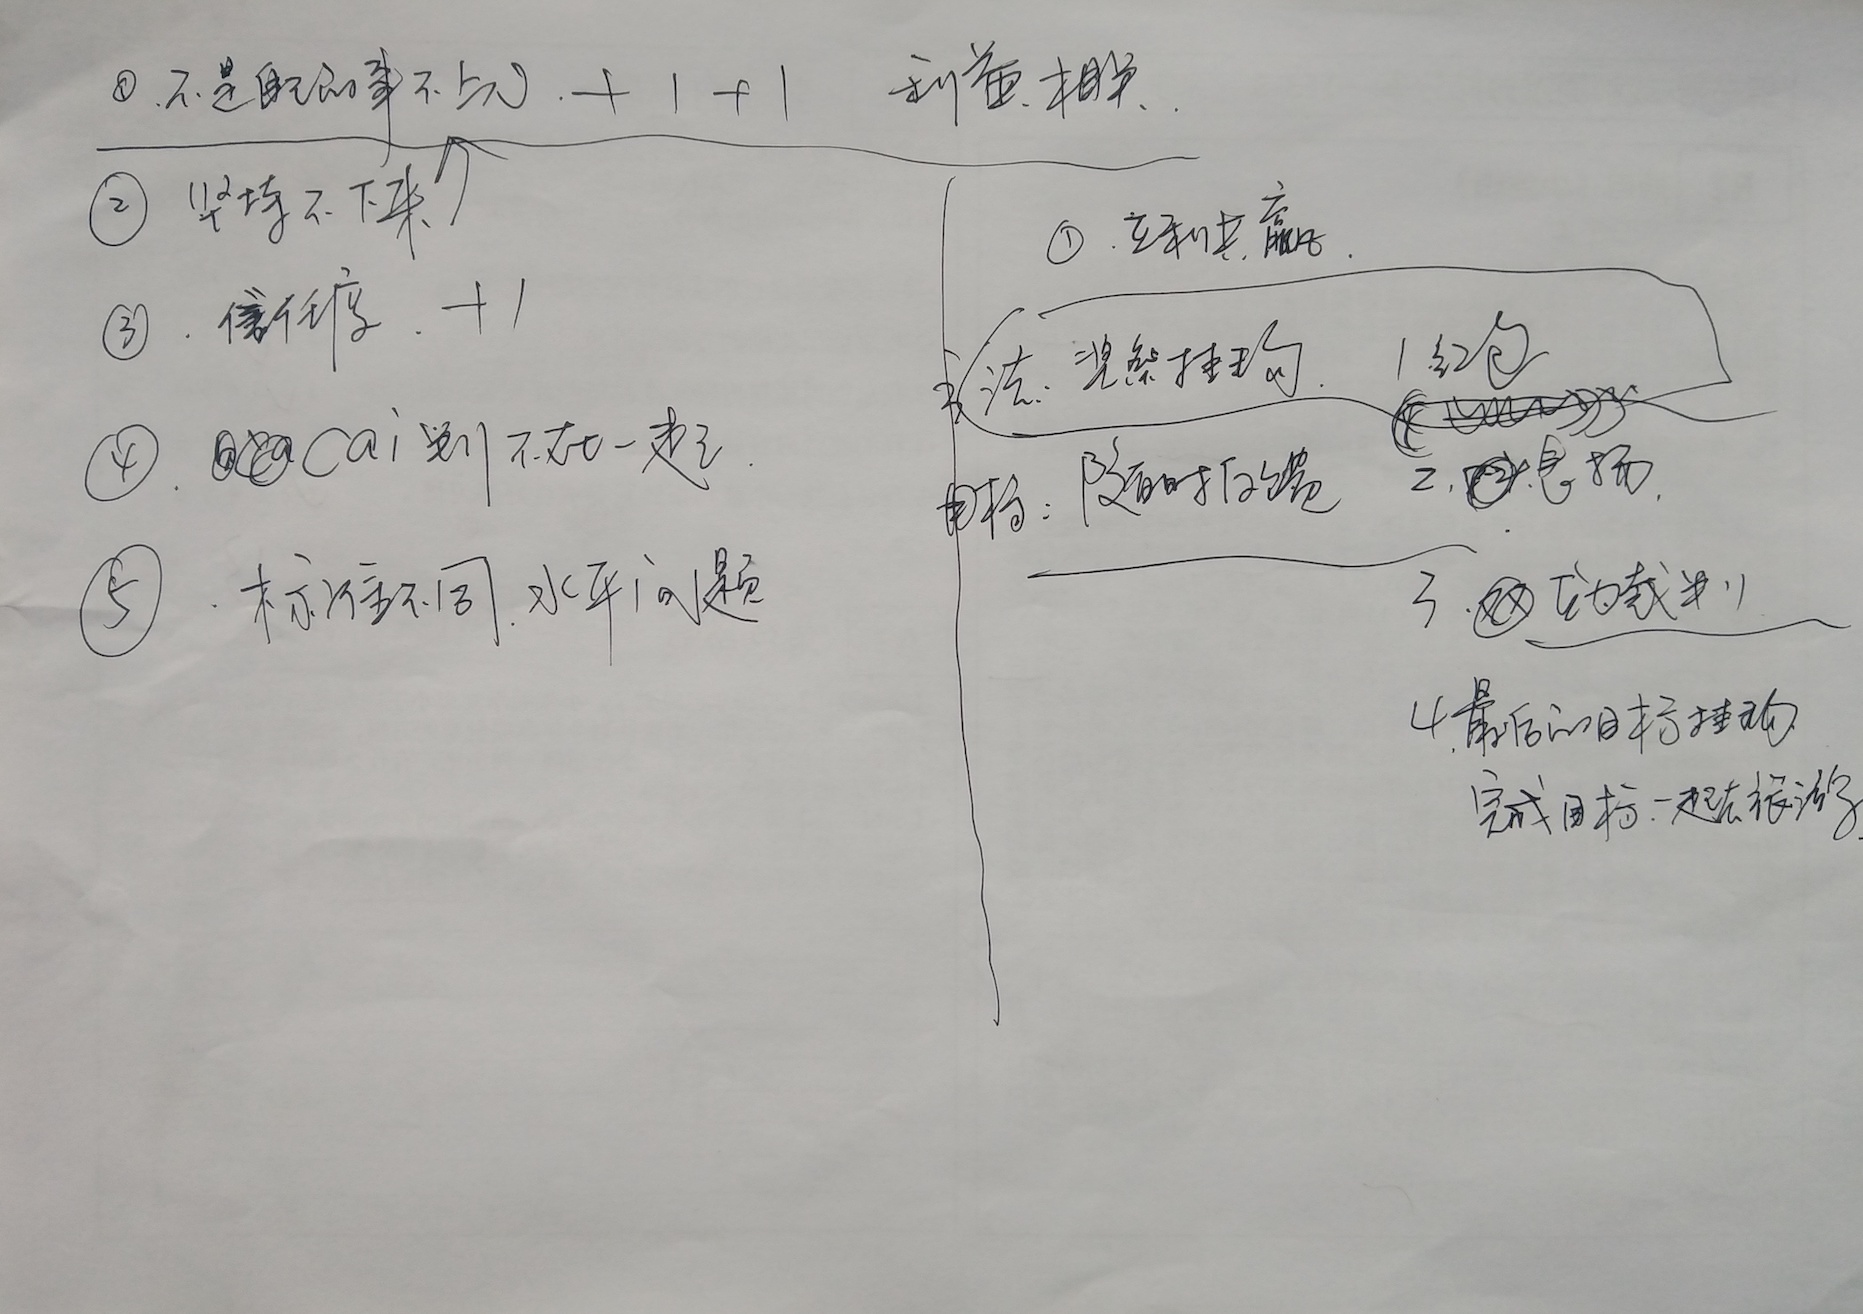 ① 不是自己的事不上心 +1 +1 利益相关
② 坚持不下来
③ 信任度 +1
④ cai判不在一起
⑤ 标准不同 水平问题
① 互利共赢
法: 奖惩挂钩 1 红包
目标: 随时反馈 2. 表扬
3. 互为裁判
4. 最后的目标挂钩
完成目标一起去旅游